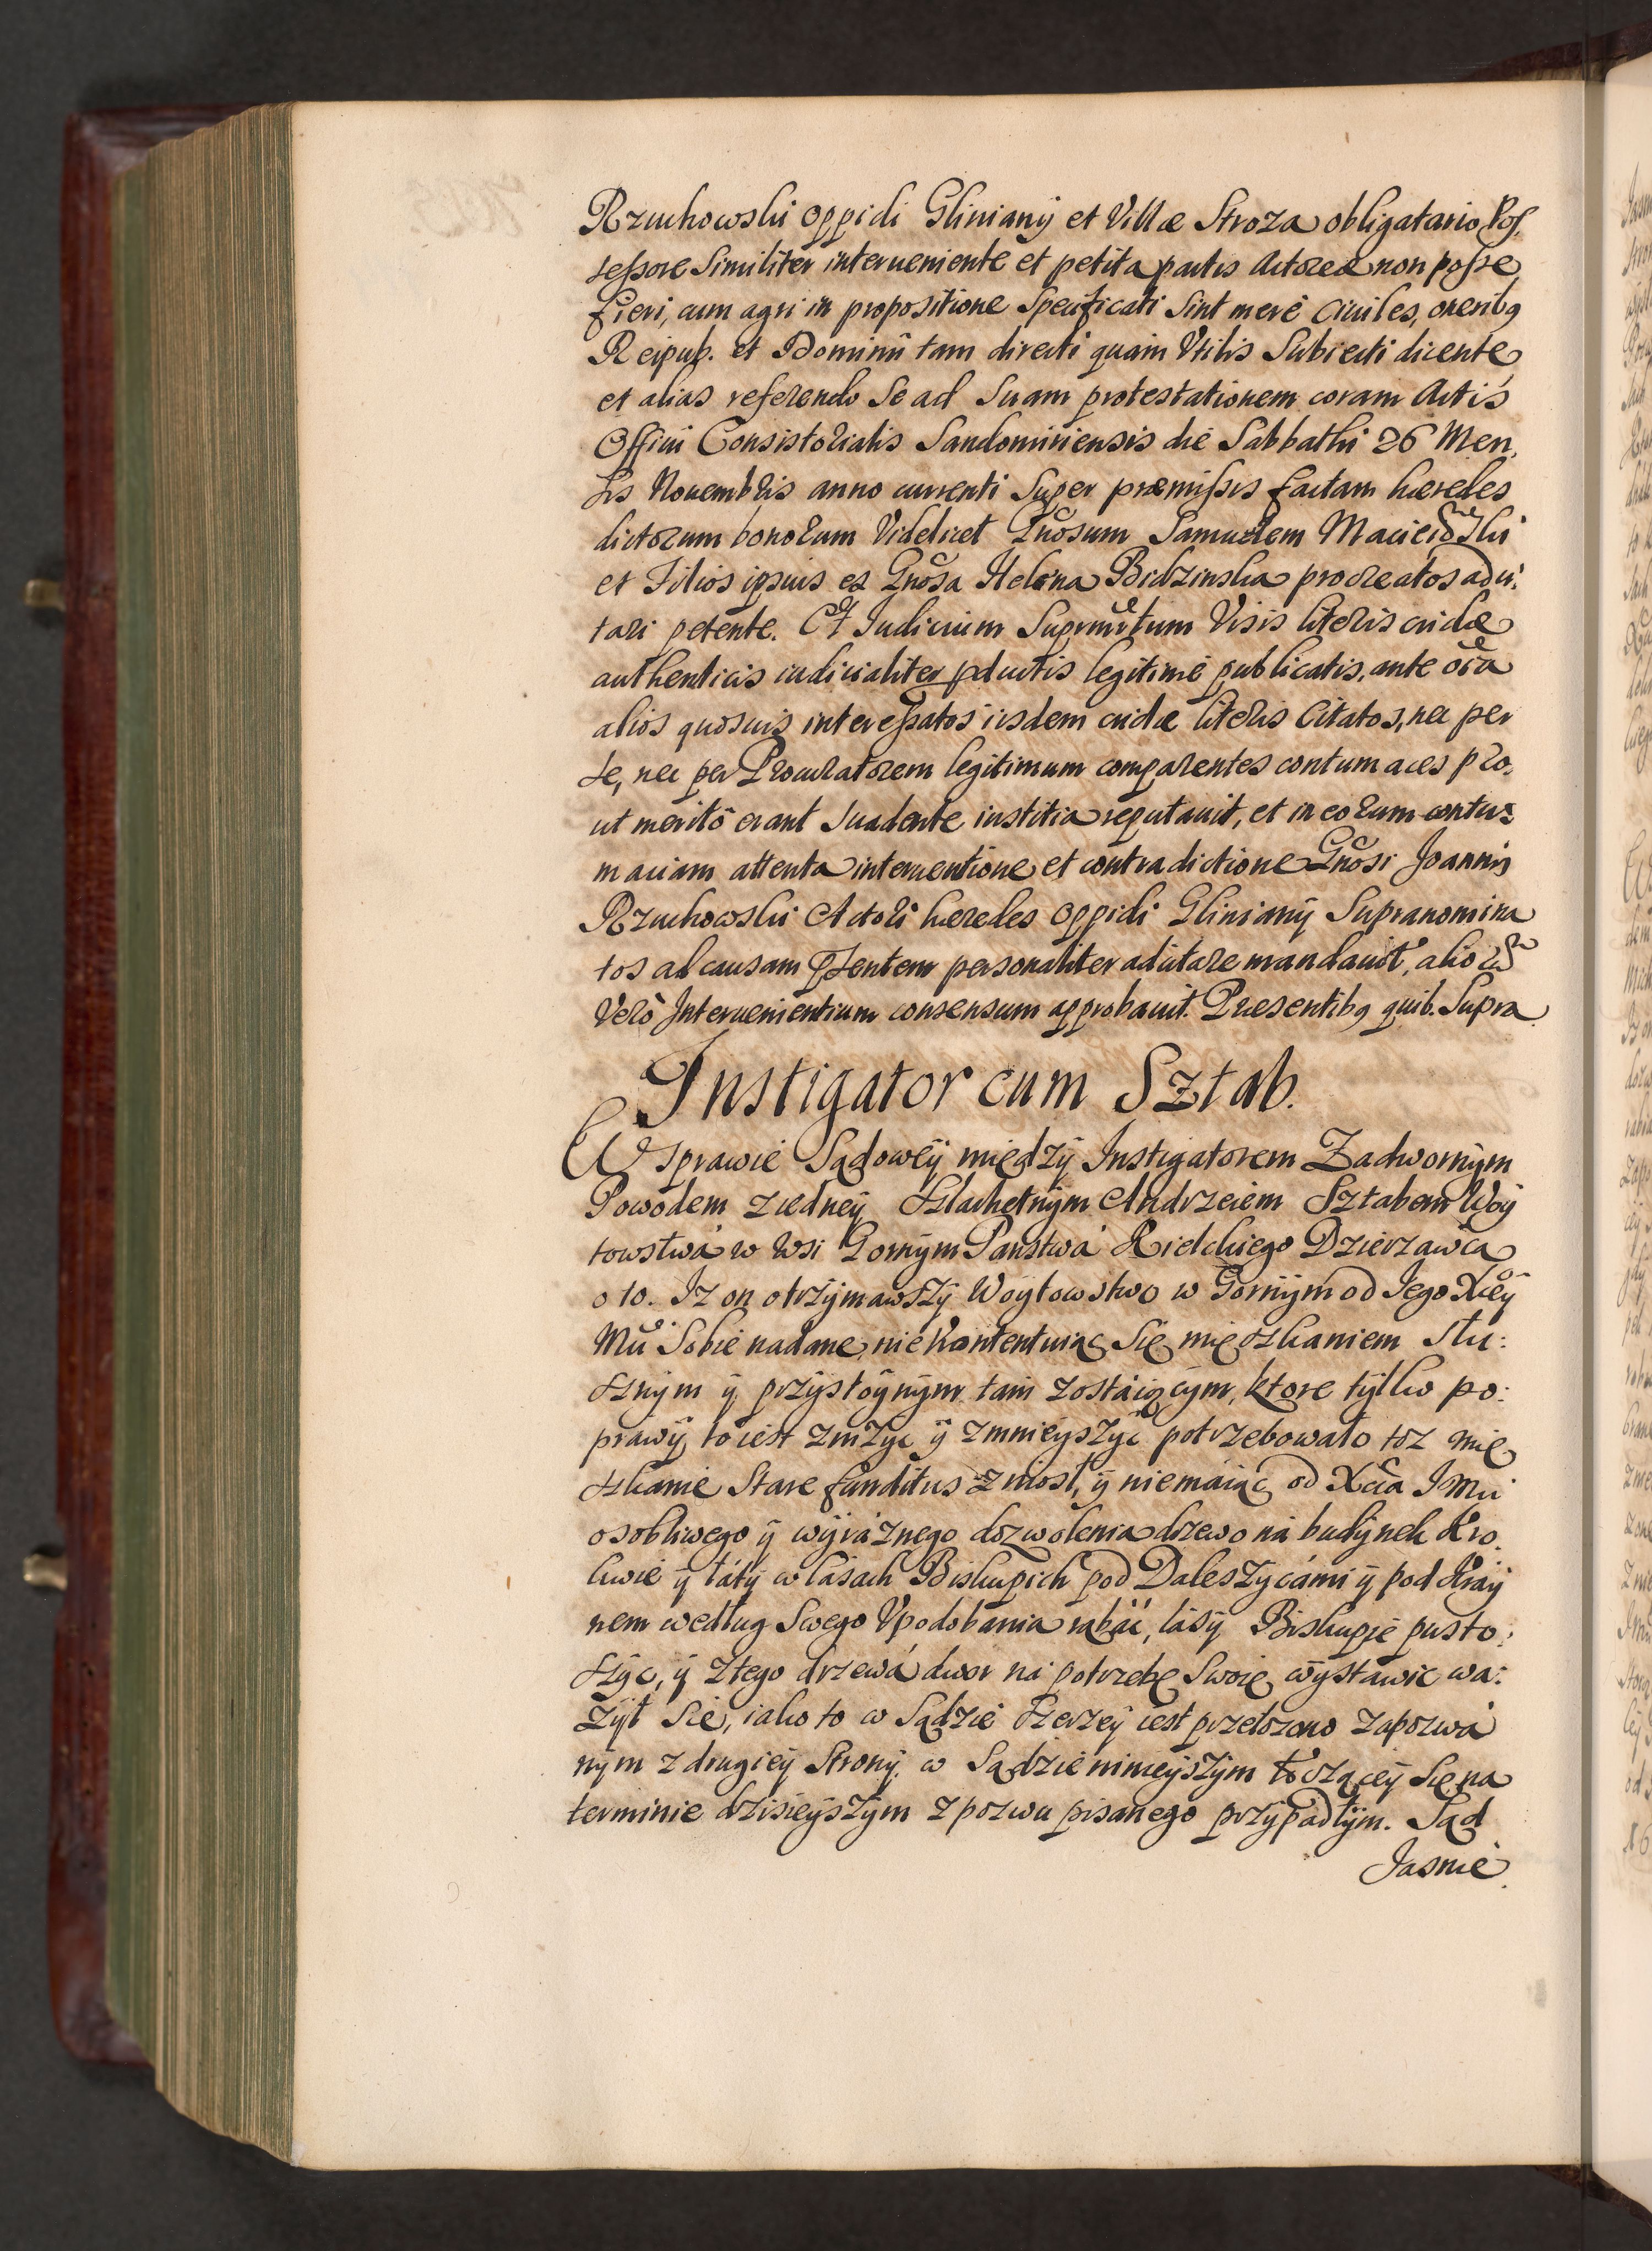 Rzuchowski oppidi Glinianÿ et Villæ Stroza obligatario Pos,
sessore Similiter interueniente et petita partis Actoreæ non posse
fieri, cum agri in propositione Specificati Sint merè Ciuiles, oneribq
Reipub. et Dominii tam directi quam Vtilis Subiecti dicente
et alias referendo Se ad Suam protestationem coram Actis
Officii Consistorialis Sandomiriensis die Sabbathi 26 Men,
sis Nouembris anno currenti Super præmissis factam hæredes
dictorum bonorum Videlicet Gnosum Samuelem Macieioski
et Filios ipsius ex Gnosa Helena Bidzinska procreatos adci,
tari petente. Et Iudicium Suprmtum Visis literis cridæ
authenticis iudicialiter pductis legitimè publicatis, ante oia
alios quosuis interessatos iisdem cridæ literis Citatos, nec per
se, nec per Procuratorem legitimum comparentes contumaces pro,
ut meritò erant Suadente iustitia reputauit, et in eorum contu:
maciam attenta interuentione et contradictione Gnosi Joannis
Rzuchowski Actori hæredes oppidi Glinianÿ Supranomina
tos ad causam psentem personaliter adcitare mandauit, alior
Verò Interuenientium consensum approbauit. Præsentibq quib. Supra
Instigator cum Sztab.
W Sprawie Sądowëÿ międzÿ Instigatorem Zadwornÿm
Powodem z iednëÿ Szlachetnÿm Andrzeiem Sztabem Woÿ
towstwá w Wsi Gornÿm Panstwá Kielckiego Dzierzawcą
o to. Iz on otrzÿmawszÿ Woÿtowstwo w Gornÿm od Iego Xcëÿ
Mci Sobie nadane, nie Kontentuiąc Się mięszkaniem słu:
sznÿm ÿ przÿstoÿnÿm tam zostáiącÿm, ktore tÿlko po:
prawÿ, to iest znizÿc ÿ zmnieÿszÿc potrzebowało toz mię
szkanie Stare funditus zniosł, ÿ niemáiąc od Xcia I Mci
osobliwego ÿ wÿráznego dozwolenia drzewo ná budÿnek Kro,
kwie ÿ łátÿ w lásach Biskupich pod Daleszÿcámi ÿ pod Kráÿ
nem według Swego Vpodobania rąbáć, lásÿ Biskupie pusto:
szÿc, ÿ z tego drzewá dwor ná potrzebę Swoię wÿstawic wa:
zÿł Się, iako to w Sądzie Szerzëÿ iest przełozono zapozwá
nÿm z drugiëÿ Stronÿ, w Sądzie ninieÿszÿm toczącëÿ Się na
terminie dzisieÿszÿm z pozwu pisanego przÿpadłÿm. Sąd
Jasnie